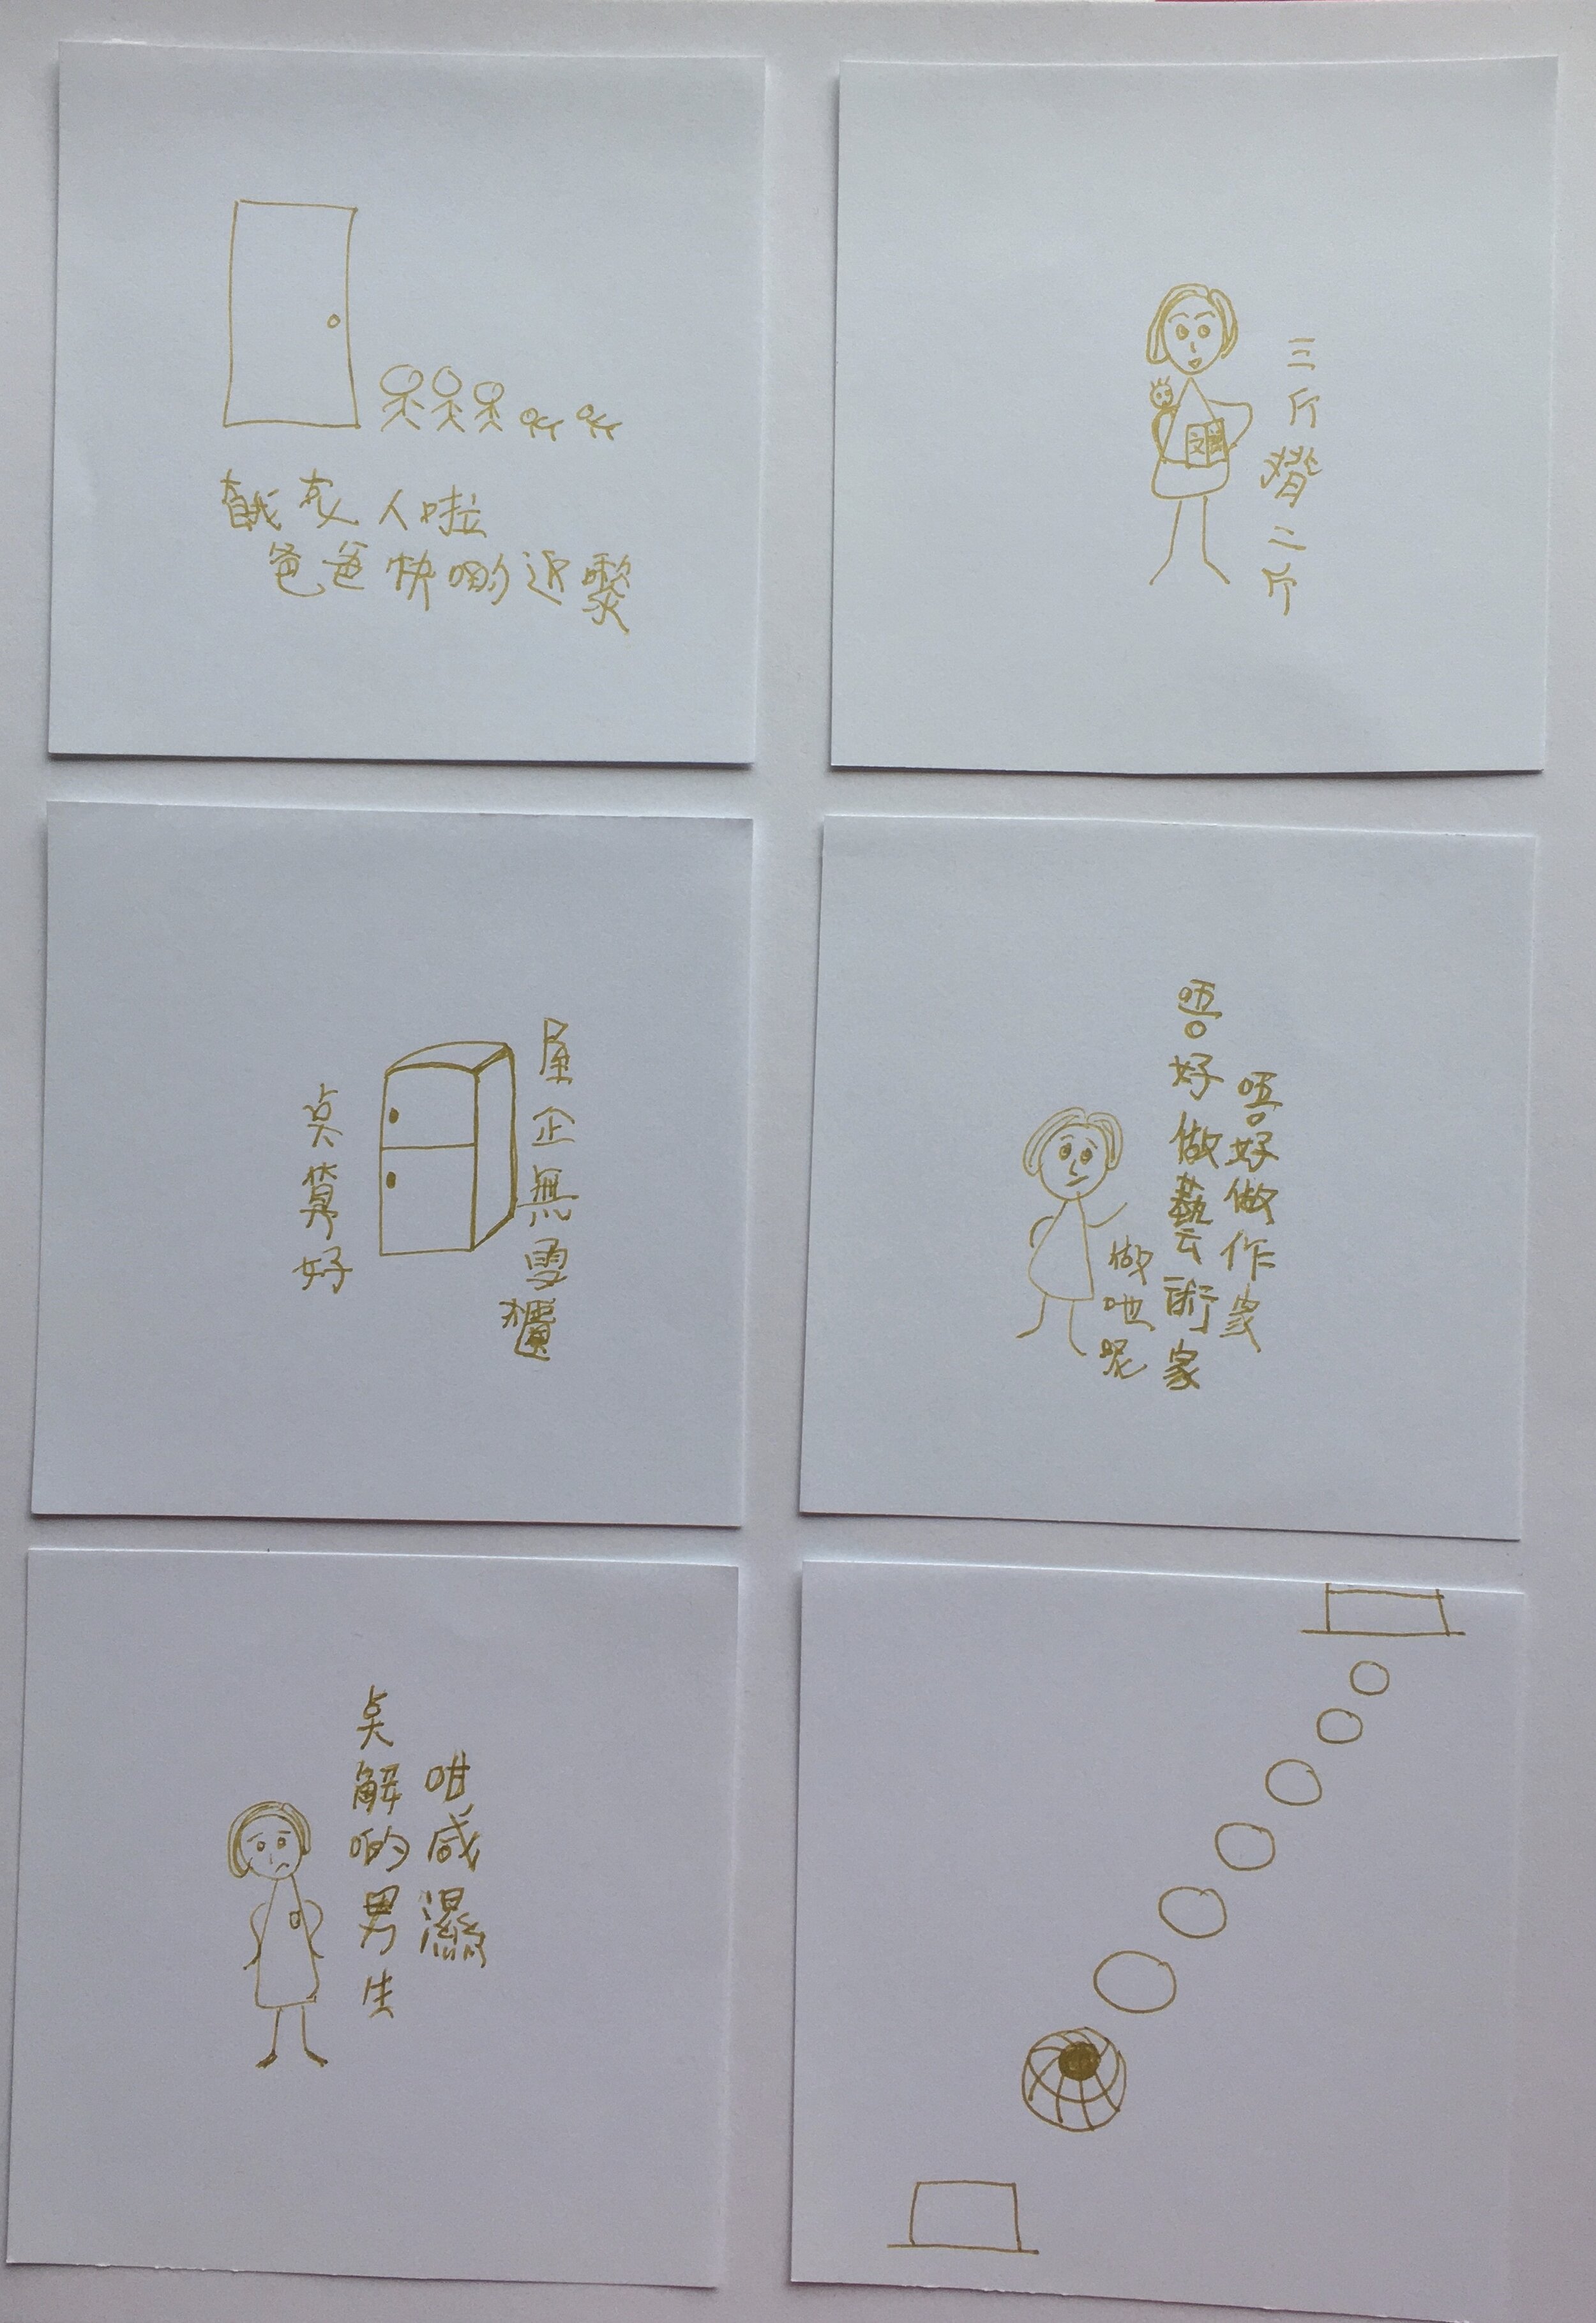 餓死人啦
爸爸快啲返嚟
三斤孭二斤
屋企無雪櫃
点算好
唔好做作家
唔好做藝術家
做吔呢
点解啲男生
咁咸濕